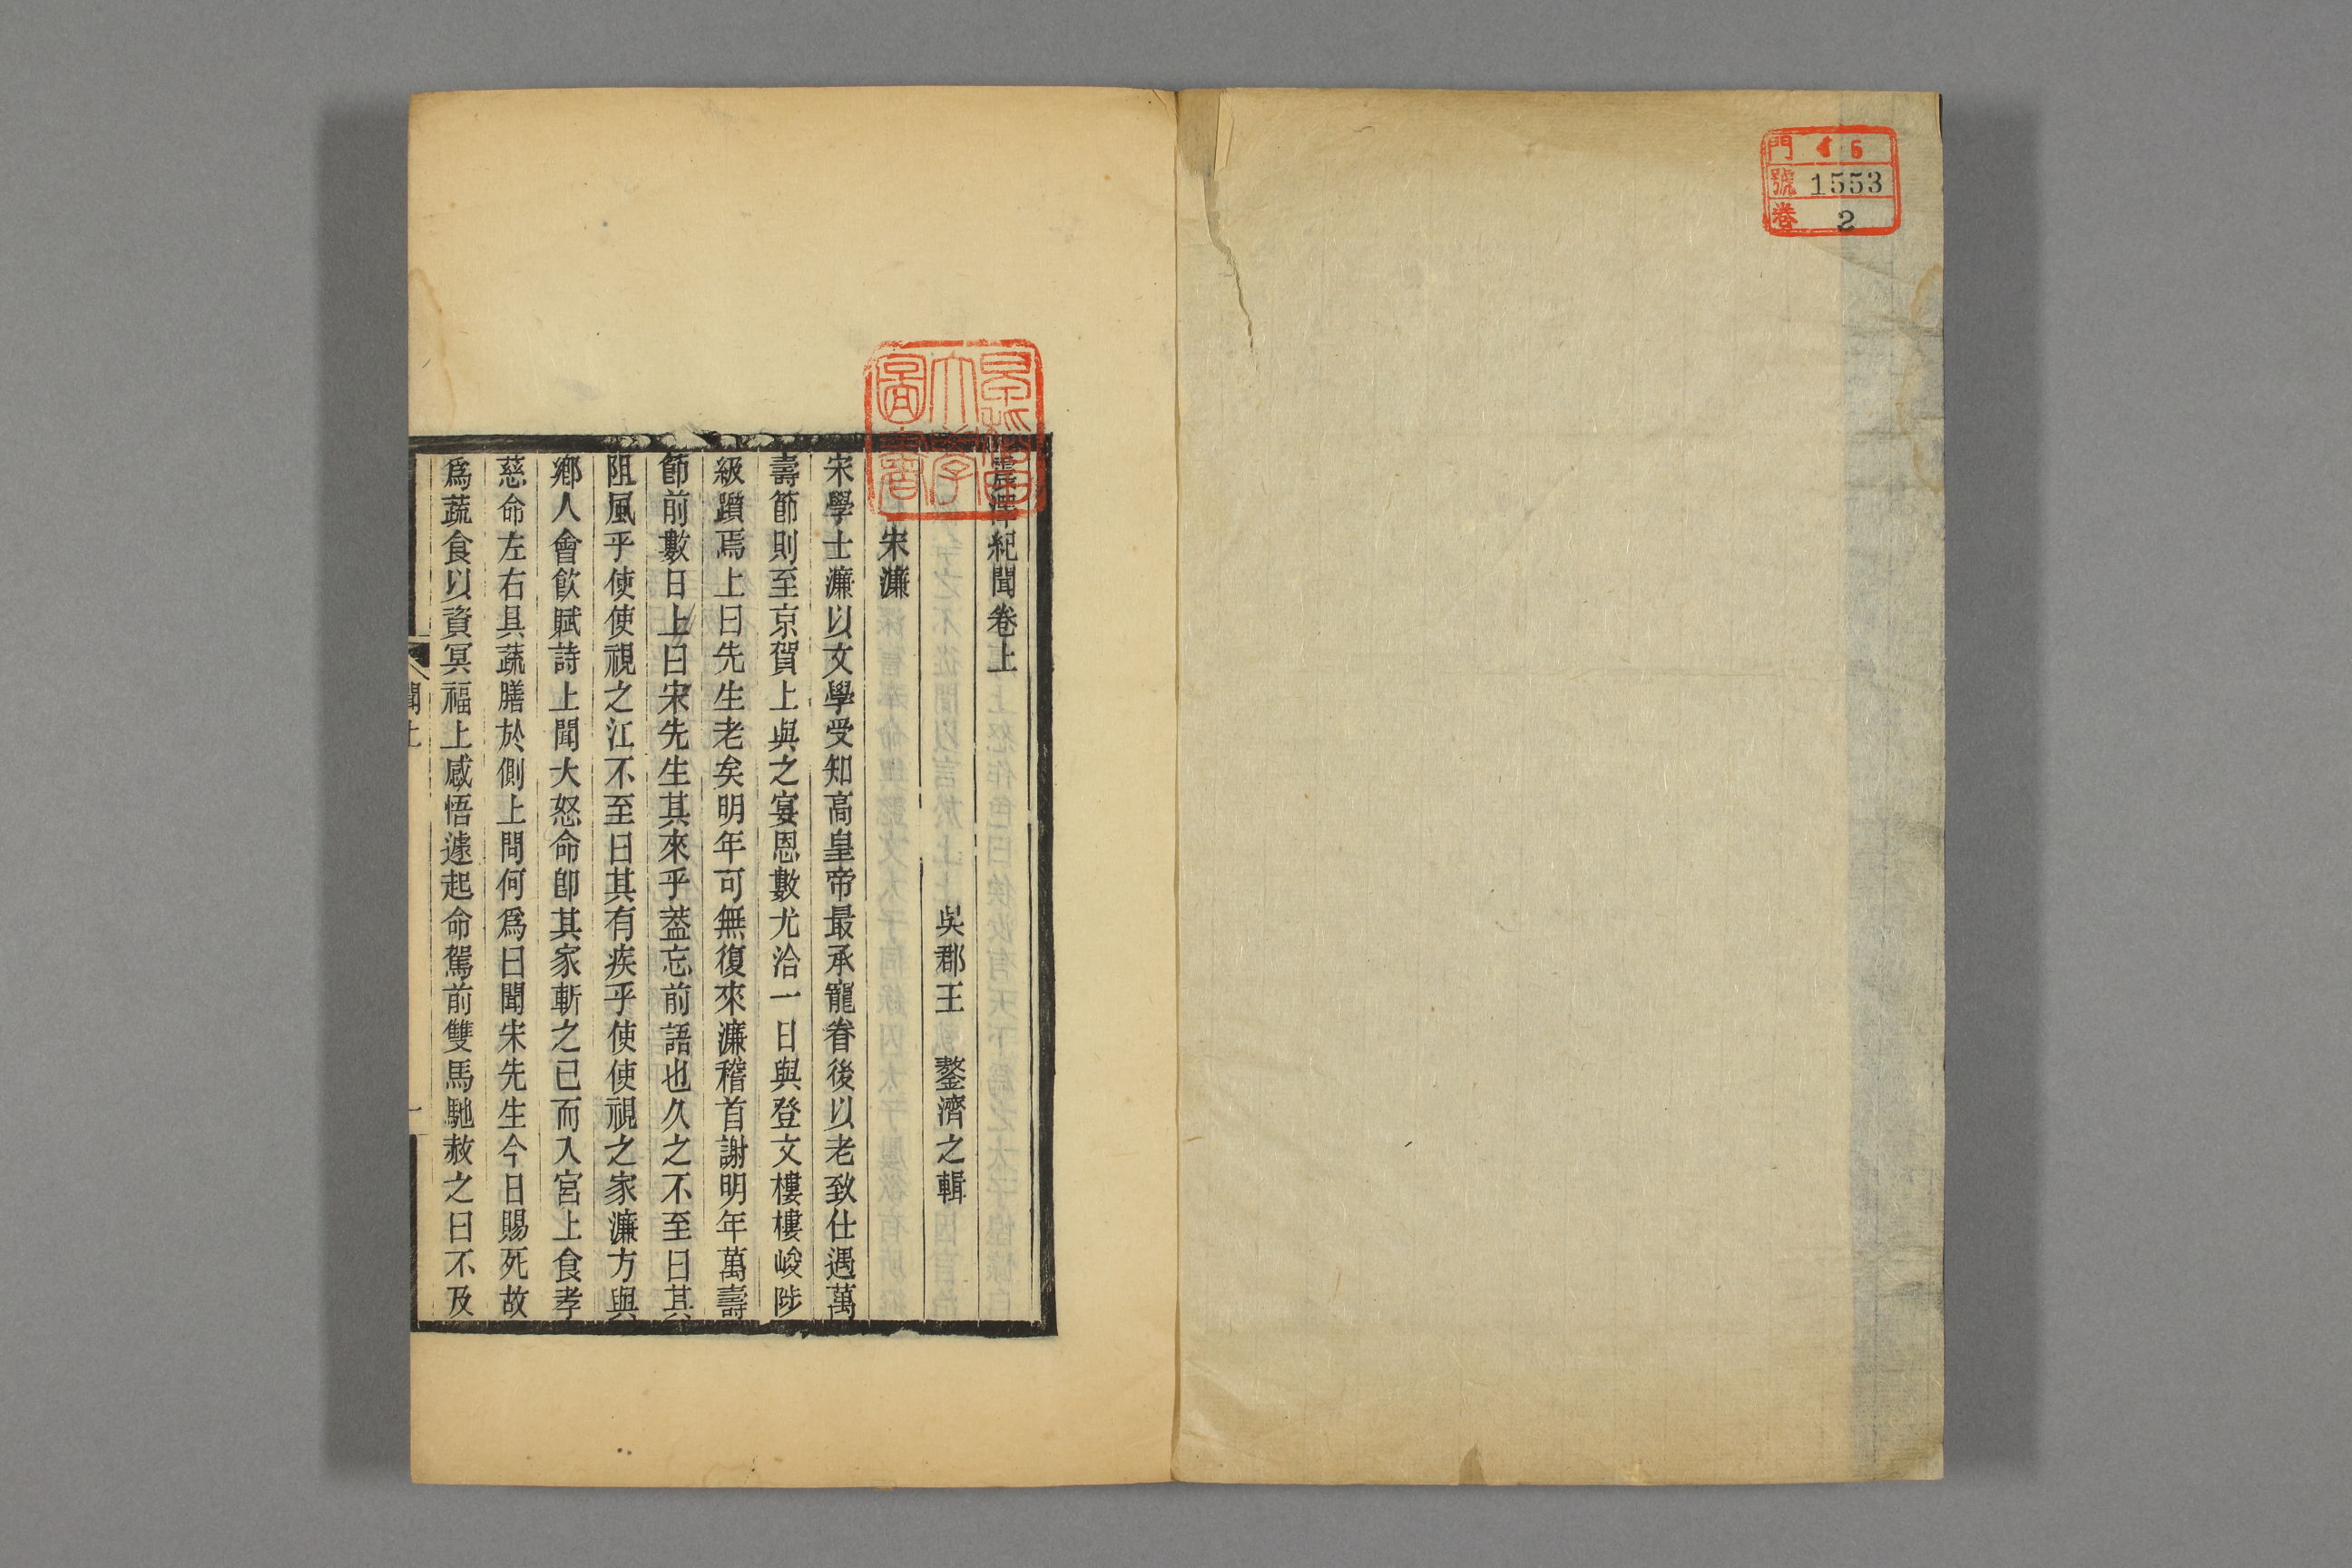 門 45
號 1553
卷 2
震澤紀聞卷上
吳郡王鏊濟之輯
宋濂
宋學士濂以文學受知高皇帝最承寵眷後以老致仕遇萬
壽節則至京賀上與之宴恩數尤洽一日與登文樓樓峻陟
級躓焉上曰先生老矣明年可無復來濂稽首謝明年萬壽
節前數日上曰宋先生其來乎葢忘前語也久之不至曰其
阻風乎使使視之江不至曰其有疾乎使使視之家濂方與
鄉人會飲賦詩上聞大怒命卽其家斬之已而入宮上食孝
慈命左右具蔬膳於側上問何爲曰聞宋先生今日賜死故
爲蔬食以資冥福上感悟遽起命駕前雙馬馳赦之曰不及
聞上
一